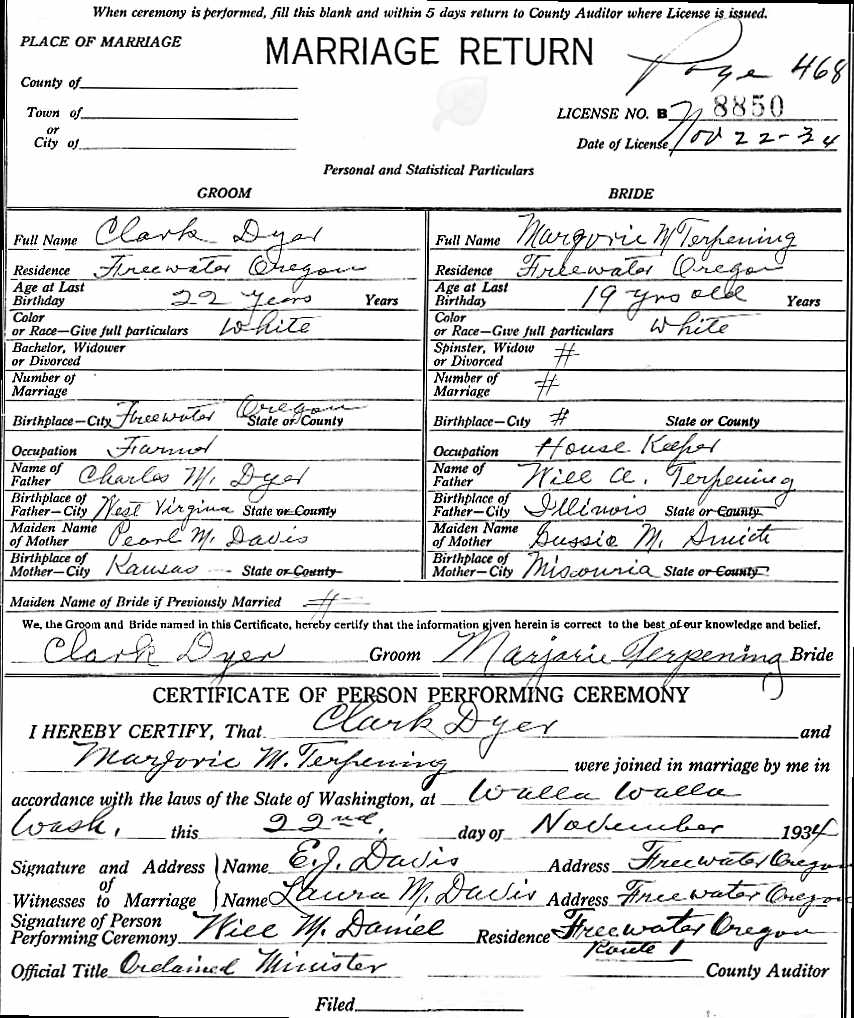 When ceremony is performed, fill this blank and within 5 days return to County Auditor where License is issued.
PLACE OF MARRIAGE
MARRIAGE RETURN
Page 468
County of
Town of
or
City of
LICENSE NO. B 8850
Date of License Nov 22-34
Personal and Statistical Particulars
GROOM BRIDE
Full Name Clark Dyer Full Name Marjorie M Terpening
Residence Freewater Oregon Residence Freewater Oregon
Age at Last Birthday 22 years Years Age at Last Birthday 19 yrs old Years
Color or Race—Give full particulars White Color or Race—Give full particulars White
Bachelor, Widower or Divorced Spinster, Widow or Divorced #
Number of Marriage Number of Marriage #
Birthplace—City Freewater Oregon State or County Birthplace—City # State or County
Occupation Farmer Occupation House Keeper
Name of Father Charles M. Dyer Name of Father Will A. Terpening
Birthplace of Father—City West Virgina State or County Birthplace of Father—City Illinois State or County
Maiden Name of Mother Pearl M. Davis Maiden Name of Mother Gussie M.
Birthplace of Mother—City Kansas State or County Birthplace of Mother—City Missouria State or County
Maiden Name of Bride if Previously Married #
We, the Groom and Bride named in this Certificate, hereby certify that the information given herein is correct to the best of our knowledge and belief.
Clark Dyer Groom Marjorie Terpening Bride
CERTIFICATE OF PERSON PERFORMING CEREMONY
I HEREBY CERTIFY, That Clark Dyer and
Marjorie M. Terpening were joined in marriage by me in
accordance with the laws of the State of Washington, at Walla Walla
Wash, this 22nd. day of November 1934
Signature and Address of Witnesses to Marriage
Name E.J. Davis Address Freewater Oregon
Name Laura M. Davis Address Freewater Oregon
Signature of Person Performing Ceremony Will M. Daniel Residence Freewater Oregon
Route 1
Official Title Ordained Minister County Auditor
Filed